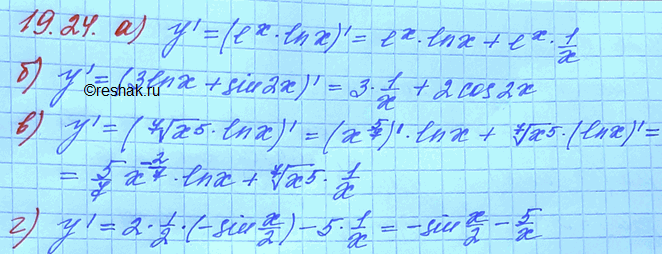 19.24. а) y' = (e^x · ln x)' = e^x · ln x + e^x · 1/x
б) y' = (3 ln x + sin 2x)' = 3 · 1/x + 2 cos 2x
©reshak.ru
в) y' = (⁷√x5 · ln x)' = (x^(5/7))' · ln x + ⁷√x5 · (ln x)' =
= 5/7 x^(-2/7) · ln x + ⁷√x5 · 1/x
г) y' = 2 · 1/2 · (-sin x/2) - 5 · 1/x = -sin x/2 - 5/x